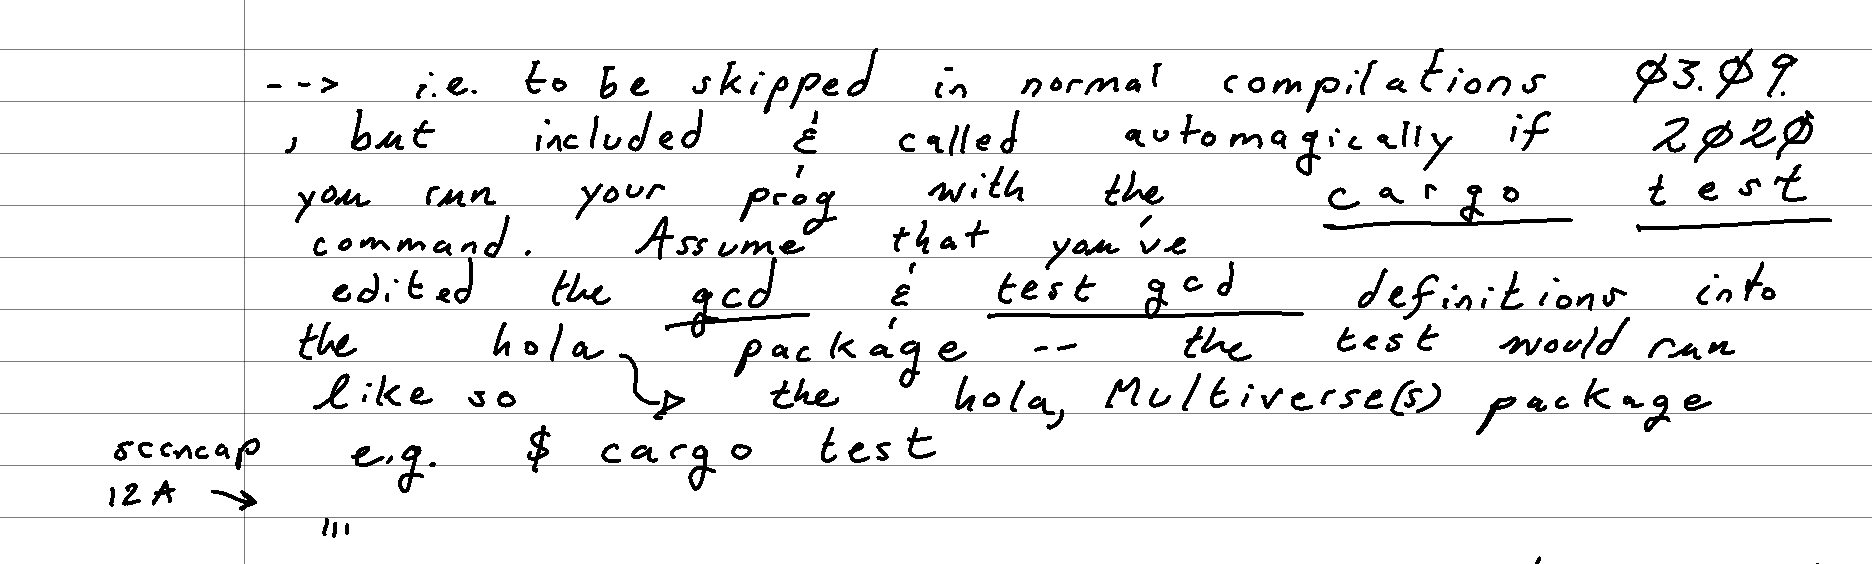 --> i.e. to be skipped in normal compilations Ø3.Ø9.
, but included & called automagically if 2Ø2Ø
you run your prog with the cargo test
command. Assume that you've
edited the gcd & test gcd definitions into
the hola package -- the test would run
like so the hola, Multiverse(s) package
sccncap e.g. $ cargo test
12A →